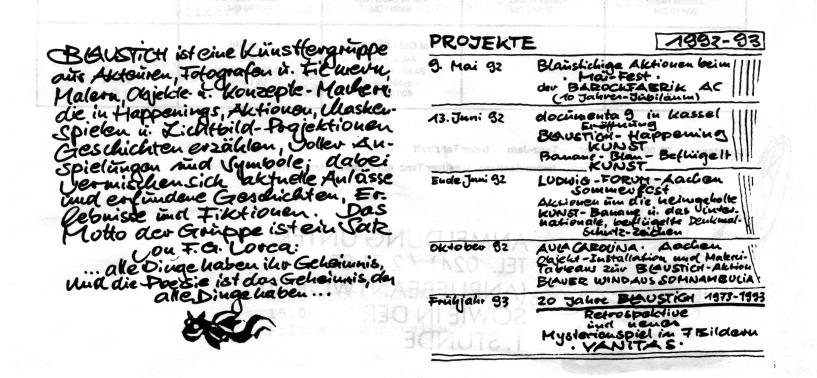 BLAUSTICH ist eine Künstlergruppe
aus Akteuren, Fotografen u. Filmern,
Malern, Objekte- u. Konzepte-Machern
die in Happenings, Aktionen, Masken-
spielen u. Lichtbild-Projektionen
Geschichten erzählen, voller An-
spielungen und Symbole; dabei
vermischen sich aktuelle Anlässe
und erfundene Geschichten, Er-
lebnisse und Fiktionen. Das
Motto der Gruppe ist ein Satz
von F.G. Lorca:
...alle Dinge haben ihr Geheimnis,
und die Poesie ist das Geheimnis, das
alle Dinge haben...
PROJEKTE 1992-93
9. Mai 92 Blaustichige Aktionen beim
. Mai-Fest .
der BAROCKFABRIK AC
(10 Jahren-Jubiläum)
13. Juni 92 documenta 9 in Kassel
Eröffnung
BLAUSTICH-Happening
KUNST
Banane-Blau-Beflügelt
KUNST
Ende Juni 92 LUDWIG-FORUM-Aachen
Sommerfest
Aktionen um die heimgeholte
KUNST-Banane u. das inter-
nationale, beflügelte Denkmal-
Schutz-Zeichen
Oktober 92 AULA CAROLINA. Aachen
Objekt-Installation und Malerei-
Tableaus zur BLAUSTICH-Aktion
BLAUER WIND AUS SOMNAMBULIA
Frühjahr 93 20 Jahre BLAUSTICH 1973-1993
Retrospektive
und neues
Mysterienspiel in 7 Bildern
. VANITAS .
ANMELDUNG UNTER
TEL. 0241
SOWIE IN DER
1. STUNDE